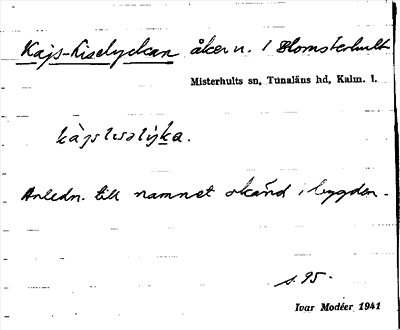 Kajs-Kiselyckan åker u. 1 Blomsterhult
Misterhults sn, Tunaläns hd, Kalm. l.
kàjsləsəlýka.
Anledn. till namnet okänd i bygden.
s. 95.
Ivar Modéer 1941